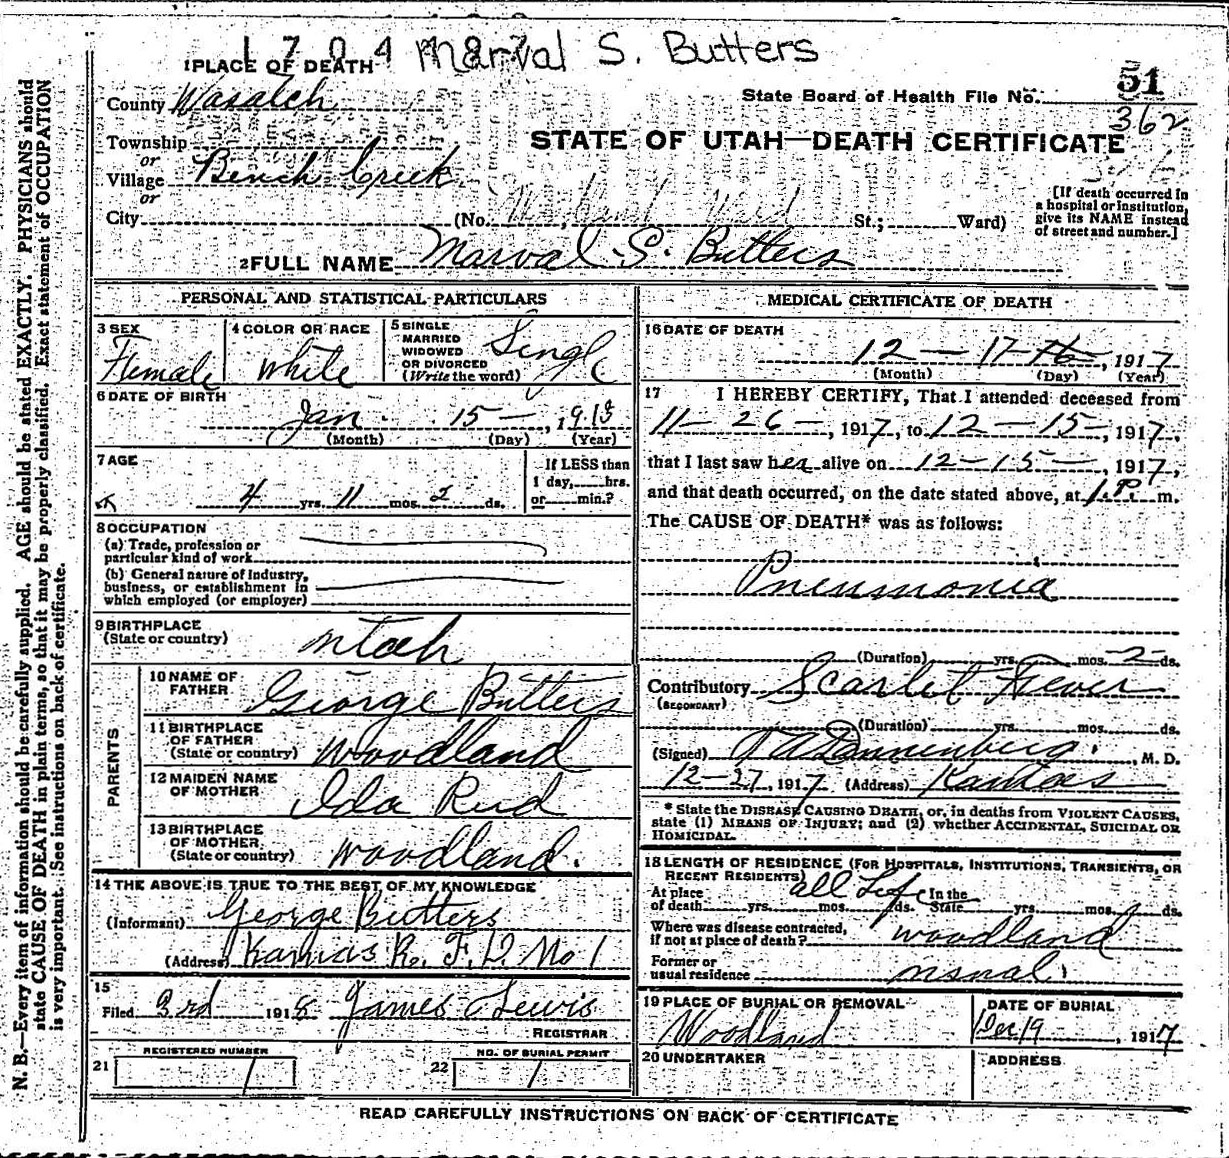 1 7 0 4 Marval S. Butters
1 PLACE OF DEATH
51
County Wasatch
State Board of Health File No.
362
Township
STATE OF UTAH—DEATH CERTIFICATE
or
Village Bench Creek
or
City (No. Woodland Ward St.; Ward)
[If death occurred in
a hospital or institution,
give its NAME instead
of street and number.]
2 FULL NAME Marval S. Butters
PERSONAL AND STATISTICAL PARTICULARS
3 SEX
Female
4 COLOR OR RACE
White
5 SINGLE
MARRIED
WIDOWED
OR DIVORCED
(Write the word)
Single
6 DATE OF BIRTH
Jan. 15 , 1913
(Month) (Day) (Year)
7 AGE
4 yrs. 11 mos. 2 ds.
If LESS than
1 day, hrs.
or min.?
8 OCCUPATION
(a) Trade, profession or
particular kind of work
(b) General nature of industry,
business, or establishment in
which employed (or employer)
9 BIRTHPLACE
(State or country)
Utah
PARENTS
10 NAME OF
FATHER
George Butters
11 BIRTHPLACE
OF FATHER
(State or country)
Woodland
12 MAIDEN NAME
OF MOTHER
Ida Reid
13 BIRTHPLACE
OF MOTHER
(State or country)
Woodland.
14 THE ABOVE IS TRUE TO THE BEST OF MY KNOWLEDGE
(Informant) George Butters
(Address) Kamas R. F. D. No 1
15
Filed 3rd 1918 James Lewis
REGISTRAR
21 REGISTERED NUMBER
1
22 NO. OF BURIAL PERMIT
1
MEDICAL CERTIFICATE OF DEATH
16 DATE OF DEATH
12 — 17 16, 1917
(Month) (Day) (Year)
17 I HEREBY CERTIFY, That I attended deceased from
11— 26 — , 1917, to 12 — 15 — , 1917,
that I last saw her alive on 12 — 15 — , 1917,
and that death occurred, on the date stated above, at 1. P. m.
The CAUSE OF DEATH* was as follows:
Pneumonia
(Duration) yrs. mos. 2 ds.
Contributory Scarlet Fever
(SECONDARY)
(Duration) yrs. mos. ds.
(Signed) Dannenberg. M. D.
12—27, 1917 (Address) Kamas
* State the DISEASE CAUSING DEATH, or, in deaths from VIOLENT CAUSES,
state (1) MEANS OF INJURY; and (2) whether ACCIDENTAL, SUICIDAL OR
HOMICIDAL.
18 LENGTH OF RESIDENCE (FOR HOSPITALS, INSTITUTIONS, TRANSIENTS, OR
RECENT RESIDENTS)
At place all Life In the
of death yrs. mos. ds. State yrs. mos. ds.
Where was disease contracted,
if not at place of death? Woodland
Former or
usual residence usual.
19 PLACE OF BURIAL OR REMOVAL
Woodland
DATE OF BURIAL
Dec. 19 , 1917
20 UNDERTAKER
ADDRESS
READ CAREFULLY INSTRUCTIONS ON BACK OF CERTIFICATE
N. B.—Every item of information should be carefully supplied. AGE should be stated EXACTLY. PHYSICIANS should
state CAUSE OF DEATH in plain terms, so that it may be properly classified. Exact statement of OCCUPATION
is very important. See instructions on back of certificate.